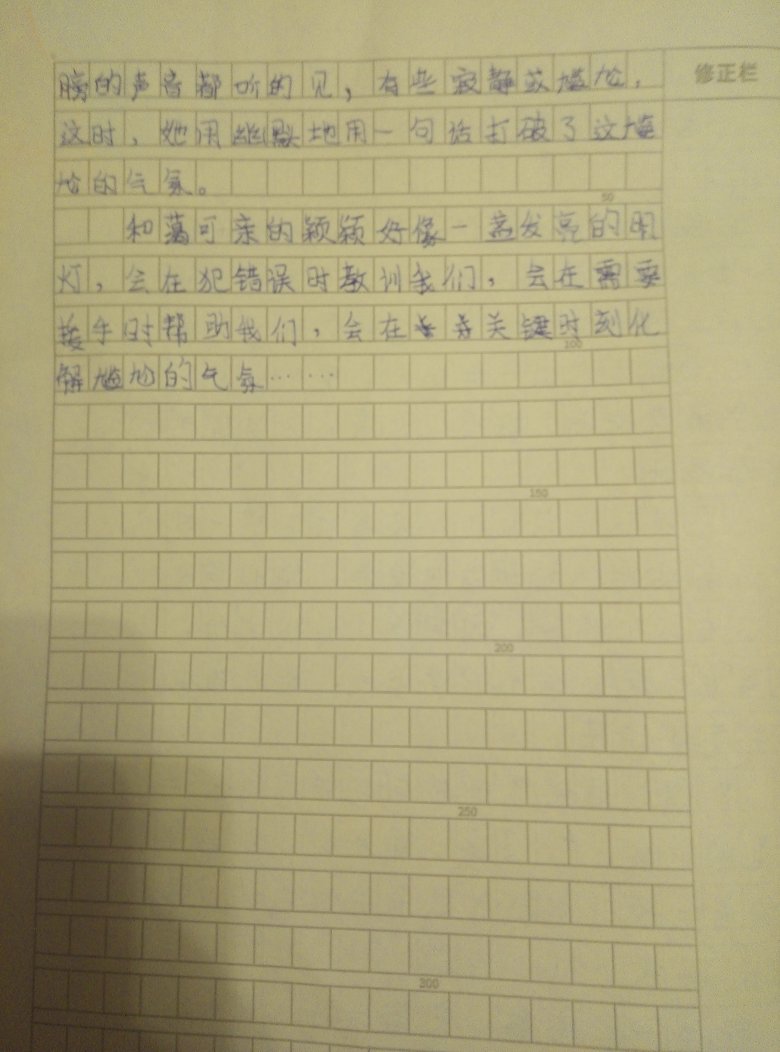 膀的声音都听的见，有些寂静或尴尬，
修正栏
这时，她用幽默地用一句话打破了这尴
尬的气氛。
50
和蔼可亲的颖颖好像一盏发亮的明
灯，会在犯错误时教训我们，会在需要
援手时帮助我们，会在关键时刻化
100
解尴尬的气氛……
150
200
250
300